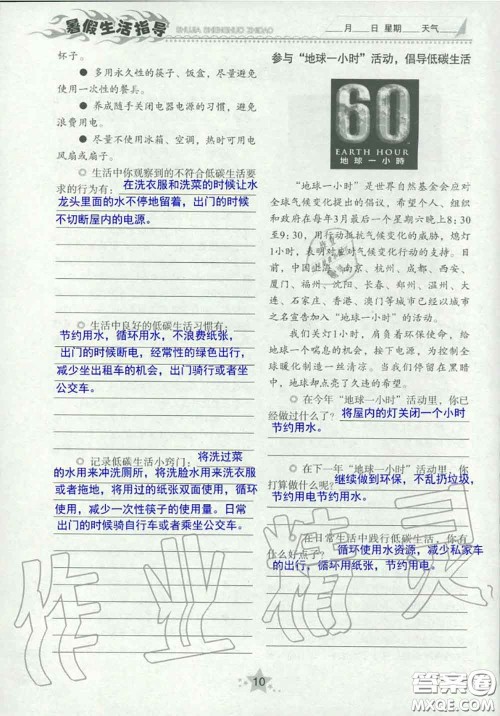 暑假生活指导
SHUJIA SHENGHUO ZHIDAO
月 日 星期 天气
杯子。
● 多用永久性的筷子、饭盒，尽量避免使
用一次性的餐具。
● 养成随手关闭电器电源的习惯，避免
浪费用电。
● 尽量不使用冰箱、空调，热时可用电
风扇或扇子。
◎ 生活中你观察到的不符合低碳生活要
求的行为有：在洗衣服和洗菜的时候让水
龙头里面的水不停地留着，出门的时候
不切断屋内的电源。
◎ 生活中良好的低碳生活习惯有：
节约用水，循环用水，不浪费纸张，
出门的时候断电，经常性的绿色出行，
减少坐出租车的机会，出门骑行或者坐
公交车。
◎ 记录低碳生活小窍门：将洗过菜
的水用来冲洗厕所，将洗脸水用来洗衣服
或者拖地，将用过的纸张双面使用，循环
使用，减少一次性筷子的用量。日常
出门的时候骑自行车或者乘坐公交车。
参与“地球一小时”活动，倡导低碳生活
60
EARTH HOUR
地球一小時
“地球一小时”是世界自然基金会应对
全球气候变化提出的倡议，希望个人、组
织和政府在每年3月最后一个星期六晚上8：30
至9：30，用行动抵抗气候变化的威胁，熄灯
1小时，表明对应对气候变化行动的支持。目
前，中国上海、南京、杭州、成都、西安、
厦门、福州、沈阳、长春、郑州、温州、大
连、石家庄、香港、澳门等城市已经以城市
之名宣告加入“地球一小时”的活动。
我们关灯1小时，肩负着环保使命，给
地球一个喘息的机会，按下电源，为控制全
球暖化制造一丝回转。当我们停留在黑暗
中，地球却点亮了久违的希望。
◎ 在今年“地球一小时”活动里，你已
经做过什么了？将屋内的灯关闭一个小时
节约用水。
◎ 在下一年“地球一小时”活动里，你
打算做什么呢？继续做到环保，不乱扔垃圾，
节约用电节约用水。
◎ 在日常生活中践行低碳生活，你有
什么好点子？循环使用水资源，减少私家车
的出行，循环用纸张，节约用电。
作业精灵
10
答案圈
MXQE.COM